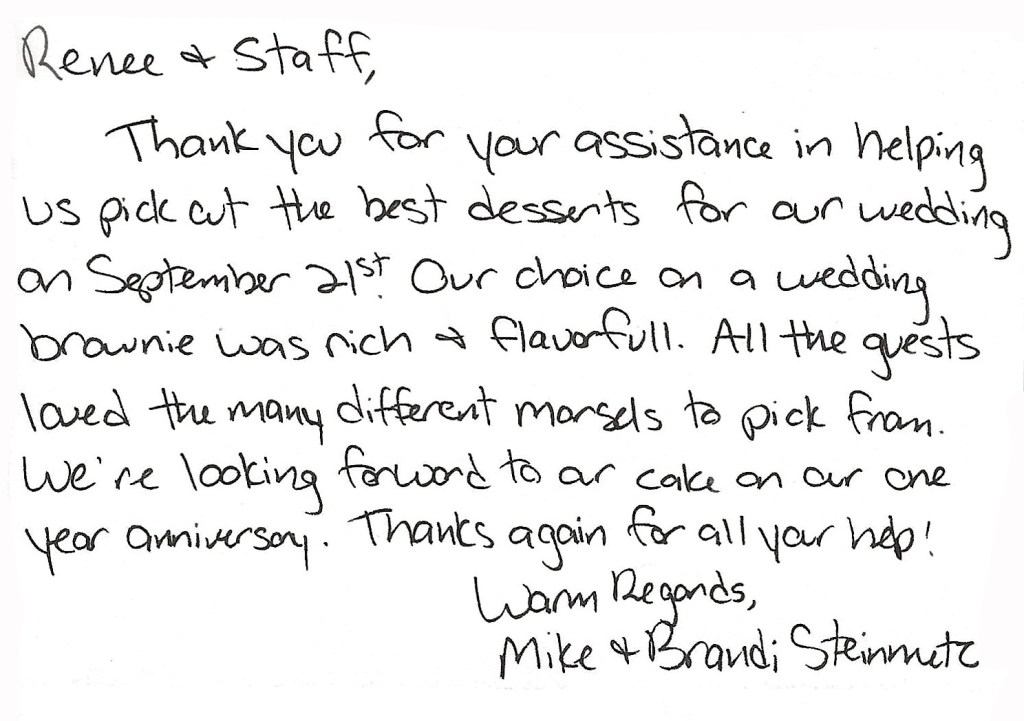 Renee & Staff,
Thank you for your assistance in helping
us pick out the best desserts for our wedding
on September 21st. Our choice on a wedding
brownie was rich & flavorfull. All the guests
loved the many different morsels to pick from.
We're looking forward to our cake on our one
year anniversary. Thanks again for all your help!
Warm Regards,
Mike & Brandi Steinmetz